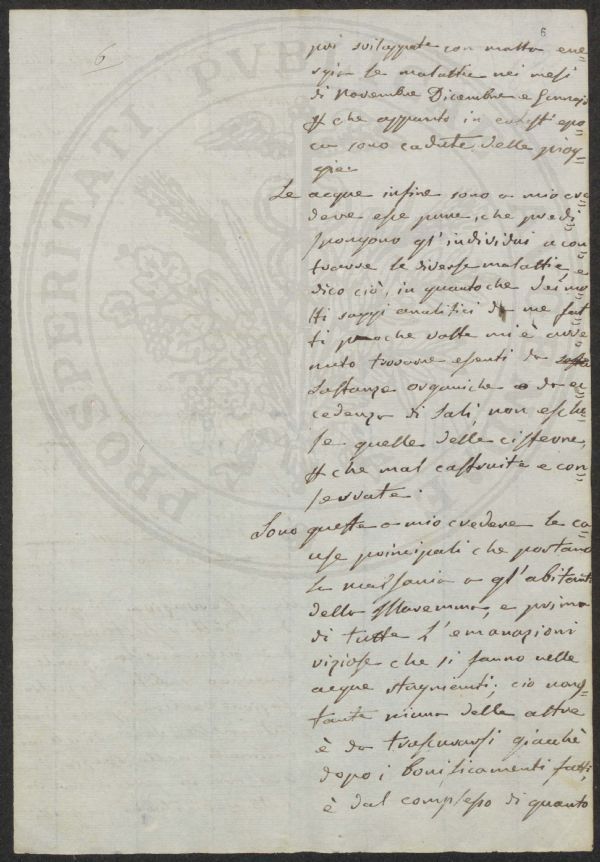 6
6
poi sviluppate con molta ene=
rgia le malattie nei mesi
di Novembre Dicembre e Gennajo
che appunto in quest'epo=
ca sono cadute delle piog=
gie.
Le acque infine sono a mio cre=
dere esse pure, che predi=
spongono gl'individui a con=
trarre le diverse malattie, e
dico ciò, in quantoche dei mo=
lti saggi analitici da me fat=
ti poche volte mi è avve=
nuto trovarne esenti da
sostanze organiche o da ec=
cedenza di sali, non esclu=
se quelle delle cisterne,
che mal costruite e con=
servate.
Sono queste a mio credere le ca=
use principali che portano
la malsania a gl'abitanti
della Maremma, e prima
di tutte l'emanazioni
viziose che si fanno nelle
acque stagnienti; cio nons=
tante niuna delle altre
è da trascurarsi giacchè
dopo i bonificamenti fatti,
è dal complesso di quanto
PROSPERITATI PVBLICAE